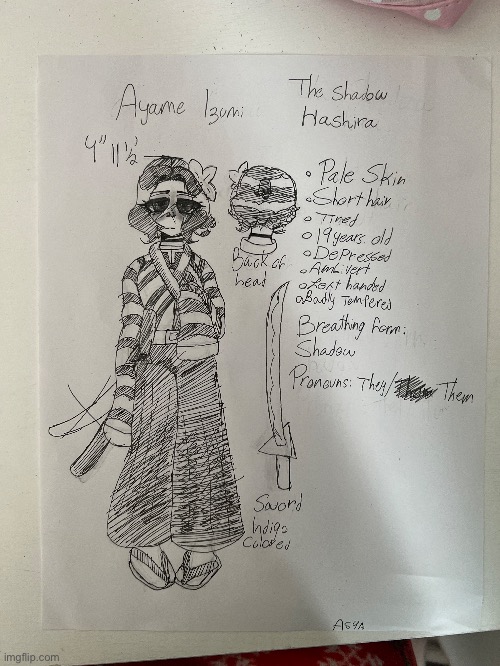 Ayame Izumi
The Shadow
Hashira
4" 11 1/2'
Pale Skin
Short hair
Tired
19 years old
Depressed
Ambivert
Left handed
Badly Tempered
Back of
head
Breathing form:
Shadow
Pronouns: They/ Them
Sword
Indigo
Colored
ASYA
imgflip.com